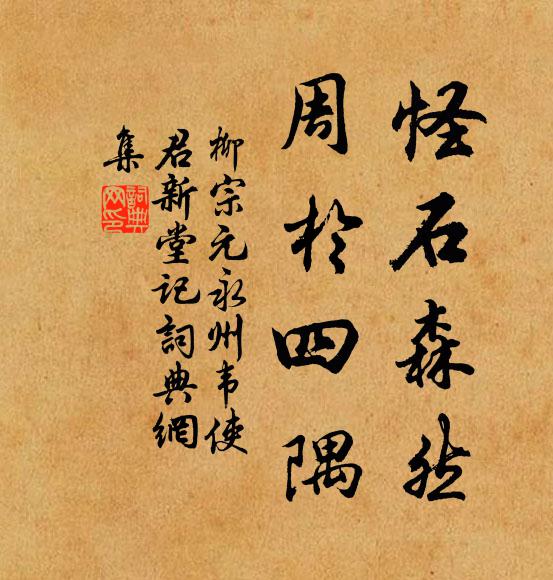 怪石森然
周於四隅
柳宗元永州韦使
君新堂记詞典網
集
詞典
网印